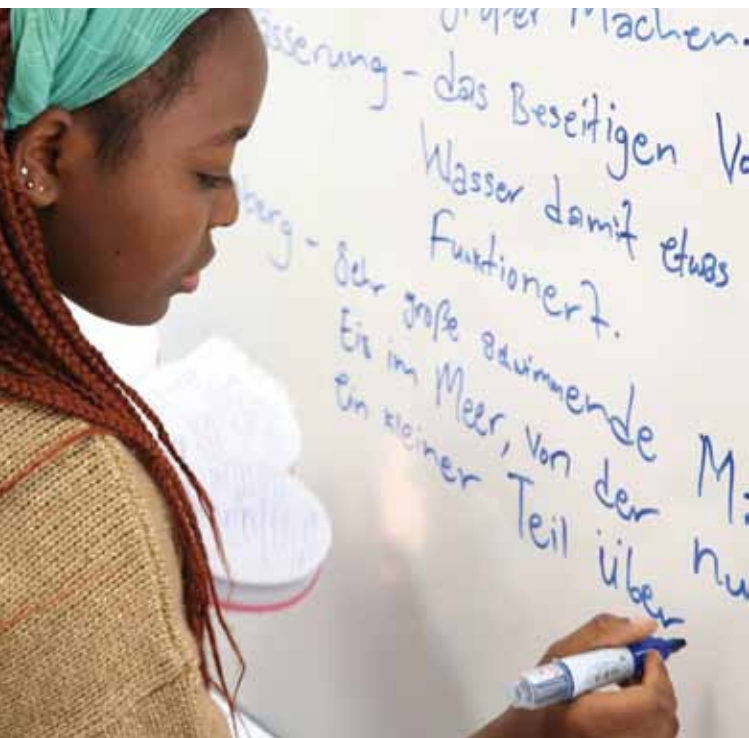 großer Machen.
sserung - das Beseitigen Vo
Wasser damit etwas
Funktionert.
berg - Sehr große schwimmende M
Eis im Meer, von der nu
Ein kleiner Teil über